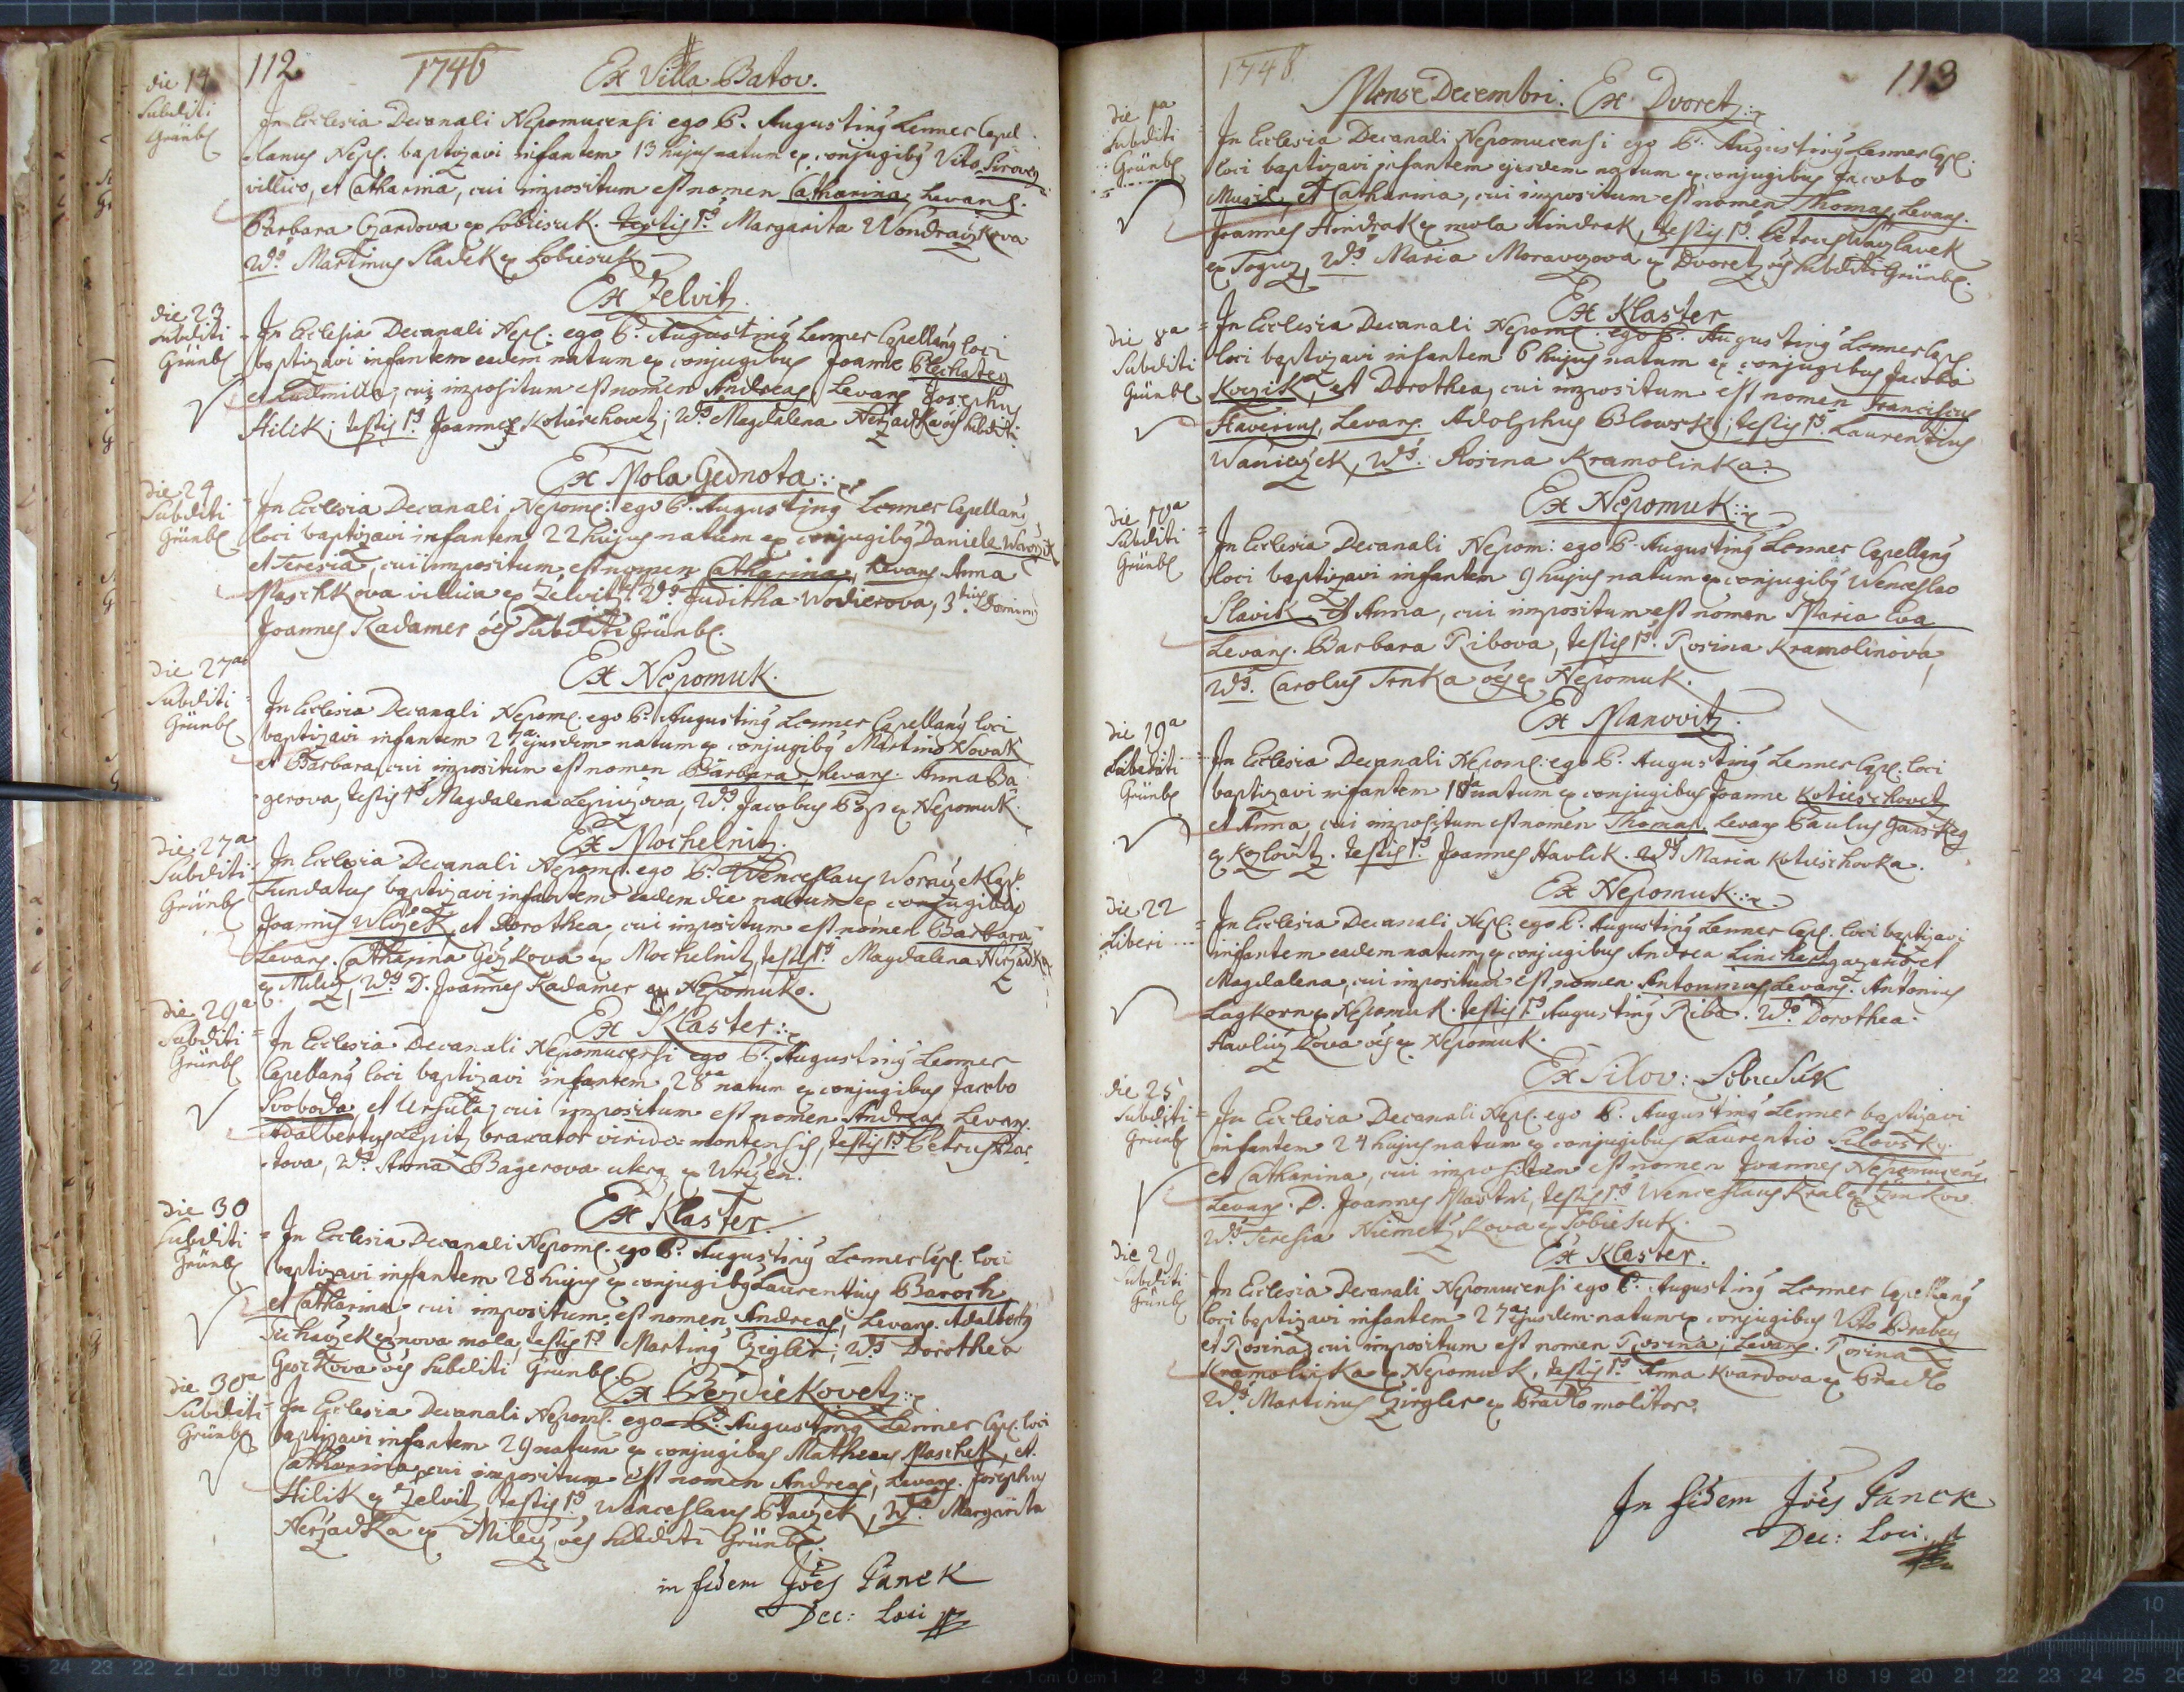 112 1746 Ex Villa Batov.
die 14 Subditi Grünb.
In Ecclesia Decanali Nepomucensi ego P. Augustinq Lenner Capel
lanus Nep. baptizavi infantem 13 hujus natum ex conjugibq Vito
villico, et Catharina, cui impositum est nomen Catharina, Levans.
Barbara Czardova ex Sobiesuk. testis 1s. Margarita Wondraczkova
2ds Martinus Sladek ex Sobiesuk
Ex Zelvitz.
die 23 Subditi Grünb.
In Ecclesia Decanali Nep. ego P. Augustinq Lenner Capellanq loci
baptizavi infantem eadem natum ex conjugibus Joanne Plechatey
et Ludmilla, cui impositum est nomen Andreas, Levans Josephus
Hilik; testis 1s. Joannes Kotieschovetz; 2ds Magdalena Nerzadka oes subditi
Ex Mola Gednota.
die 24 Subditi Grünb.
In Ecclesia Decanali Nepom. ego P. Augustinq Lenner Capellanq
loci baptizavi infantem 22 hujus natum ex conjugibq Daniele
et Teresia, cui impositum est nomen Catharina, Levans Anna
Maschkova villica ex Zelvitz. 2ds Juditha Wodierova, 3tius Dominus
Joannes Kadamer oes Subditi Grünb.
Ex Nepomuk.
die 27a Subditi Grünb.
In Ecclesia Decanali Nepom. ego P. Augustinq Lenner Capellanq loci
baptizavi infantem 27a ejusdem natum ex conjugibq Martino Novak
et Barbara, cui impositum est nomen Barbara, Levans. Anna Ba
gerova, testis 1s Magdalena, 2ds Jacobus ex Nepomuk.
Ex Mochelnitz.
die 27a Subditi Grünb.
In Ecclesia Decanali Nepom. ego P. Wenceslaus Worzissek Cap.
Fundatus baptizavi infantem eadem die natum ex conjugibus
Joannis Wlczek, et Dorothea, cui impositum est nomen Barbara
Levans. Catharina ex Mochelnitz, testis 1s. Magdalena Nerzadka
ex Milecz, 2ds D. Joannes Kadamer ex Nepomuko.
Ex Klaster.
die 29a Subditi Grünb.
In Ecclesia Decanali Nepomucensi ego P. Augustinq Lenner
Capellanq loci baptizavi infantem 28va natum ex conjugibus Jacobo
Svoboda, et Ursula, cui impositum est nomen Andreas, Levans.
Adalbertus braxator virido-montensis, testis 1s Petrus
tova, 2ds Anna Bagerova uterq ex Wrczen.
Ex Klaster.
die 30 Subditi Grünb.
In Ecclesia Decanali Nepom. ego P. Augustinq Lenner Cap. loci
baptizavi infantem 28 hujus ex conjugibq Laurentius Baroch
et Catharina cui impositum est nomen Andreas, Levans. Adalbertq
Suchaczek ex nova mola, testis 1s Martinq Czigler; 2ds Dorothea
oes subditi Grünb.
Ex
die 30a Subditi Grünb.
In Ecclesia Decanali Nepom. ego P. Augustinq Lenner Cap. loci
baptizavi infantem 29 natum ex conjugibus Matheus Maschek, et
Catharina, cui impositum est nomen Andreas, Levans. Josephus
Hilik ex Zelvitz, testis 1s, Wenceslaus Ptaczek, 2da Margarita
Nerzadka ex Milecz oes subditi Grünb.
in fidem Joës Panek
Dec: Loci
1746 Mense Decembri. Ex Dvoretz 113
die 1a Subditi Grünb.
In Ecclesia Decanali Nepomucensi ego P. Augustinq Lenner Cap.
loci baptizavi infantem ejusdem natum ex conjugibus Jacobo
Muzik, et Catharina, cui impositum est nomen Thomas, Levans.
Joannes Hindrak ex mola Hindrak, testis 1s. Petrus Waczlavek
ex, 2ds Maria Moravczova ex Dvoretz oes subditi Grünb.
Ex Klaster
die 8a Subditi Grünb.
In Ecclesia Decanali Nepom. ego P. Augustinq Lenner Cap.
loci baptizavi infantem 6 hujus natum ex conjugibus Jacobo
et Dorothea, cui impositum est nomen Franciscus
Xaverius, Levans. Adolphus Blowsky; testis 1s. Laurentius
Waniczek, 2ds. Rosina Kramolinka.
Ex Nepomuk
die 10a Subditi Grünb.
In Ecclesia Decanali Nepom: ego P. Augustinq Lenner Capellanq
loci baptizavi infantem 9 hujus natum ex conjugibq Wenceslao
Slavik, et Anna, cui impositum est nomen Maria Eva
Levans. Barbara Ribova, testis 1s. Rosina Kramolinova,
2ds. Carolus Trnka oes ex Nepomuk.
Ex Manovitz.
die 19a Subditi Grünb.
In Ecclesia Decanali Nepom. ego P. Augustinq Lenner Cap. loci
baptizavi infantem 18a natum ex conjugibus Joanne Kotieschovetz
et Anna, cui impositum est nomen Thomas, Levans Paulus
ex Kozlovitz. testis 1s Joannes Havlik. 2ds Maria Kotieschovka.
Ex Nepomuk
die 22 Liberi
In Ecclesia Decanali Nep. ego P. Augustinq Lenner Cap. loci baptizavi
infantem eadem natum, ex conjugibus Andrea et
Magdalena, cui impositum est nomen Antonius, Levans. Antonius
Lagkorn ex Nepomuk. testis 1s Augustinq Riba. 2ds Dorothea
oes ex Nepomuk.
Ex Silov: Sobiesuk
die 25 Subditi Grünb.
In Ecclesia Decanali Nep. ego P. Augustinq Lenner baptizavi
infantem 24 hujus natum ex conjugibus Laurentio Silovsky
et Catharina, cui impositum est nomen Joannes Nepomucenq
Levans. D. Joannes, testis 1s Wenceslaus Kral ex Zinkov.
2ds Teresia Niemetzkova ex Sobiesuk.
Ex Klaster.
die 29 Subditi Grünb.
In Ecclesia Decanali Nepomucensi ego P. Augustinq Lenner Capellanq
loci baptizavi infantem 27a ejusdem natum ex conjugibus Vito Brabecz
et Rosina, cui impositum est nomen Rosina, Levans. Rosina
Kramolinka ex Nepomuk, testis 1s Anna Kvardova ex Pradlo
2ds Martinus Czirgler ex Pradlo molitor.
In fidem Joës Panek
Dec: Loci